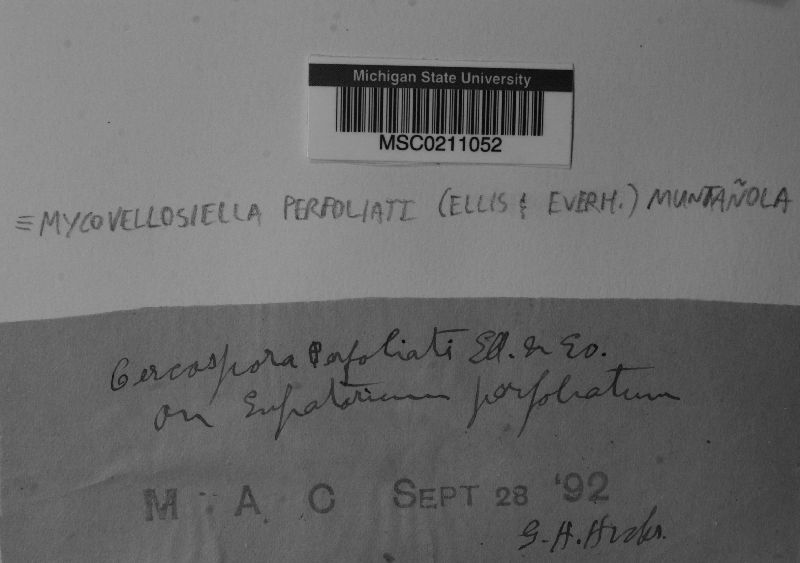 Michigan State University
MSC0211052
≡ MYCOVELLOSIELLA PERFOLIATI (ELLIS & EVERH.) MUNTAÑOLA
Cercospora Perfoliati Ell. & Ev.
on Eupatorium perfoliatum
M. A. C SEPT 28 '92
G. H. Hicks.